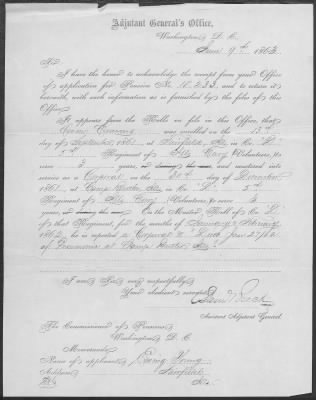 Adjutant General's Office,
Washington, D. C.
June 9th 1863
Sir:
I have the honor to acknowledge the receipt from your Office
of application for Pension No. 10.233, and to return it
herewith, with such information as is furnished by the files of this
Office.
It appears from the Rolls on file in this Office, that
Young was enrolled on the 13th
day of September 1861, at Fairfield, Ills in Co. "L"
5th Regiment of Ills Cavy Volunteers, to
serve 3 years, or during the war, and mustered into
service as a Corporal on the 31st of December
1861, at Camp Butler, Ills in Co. "L" 5th
Regiment of Ills Cavy Volunteers, to serve 3
years, or during the war. On the Muster Roll of Co. "L"
of that Regiment, for the months of January & February
1862, he is reported a Corporal & "Died Jan 27/62
of Pneumonia at Camp Butler Ills"
I am, Sir, very respectfully,
Your obedient servant,
Assistant Adjutant General.
The Commissioner of Pensions
Washington, D. C.
Memoranda
Name of applicant, Young
Address, Fairfield
Ills